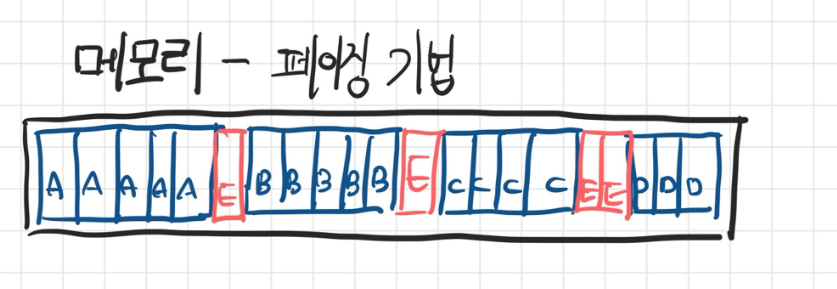 메모리 - 페이징 기법
A A A A A E B B B B B E C C C C E E D D D